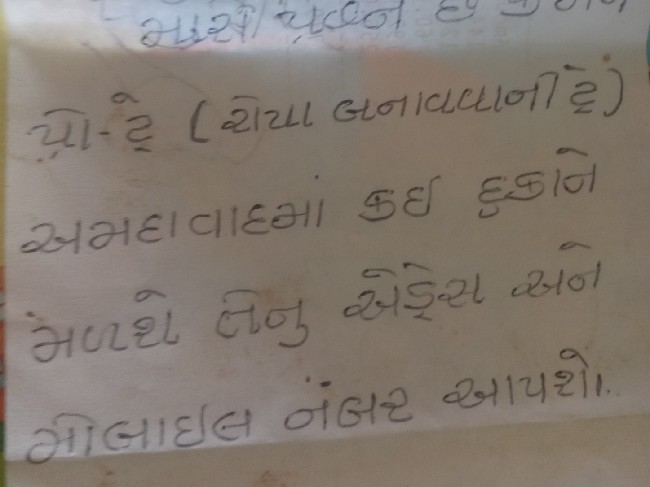 મારી પાસે
પ્રો-ટ્રે (રોપા બનાવવાની ટ્રે)
અમદાવાદમાં કઇ દુકાને
મળશે તેનુ એડ્રેસ અને
મોબાઇલ નંબર આપશો..